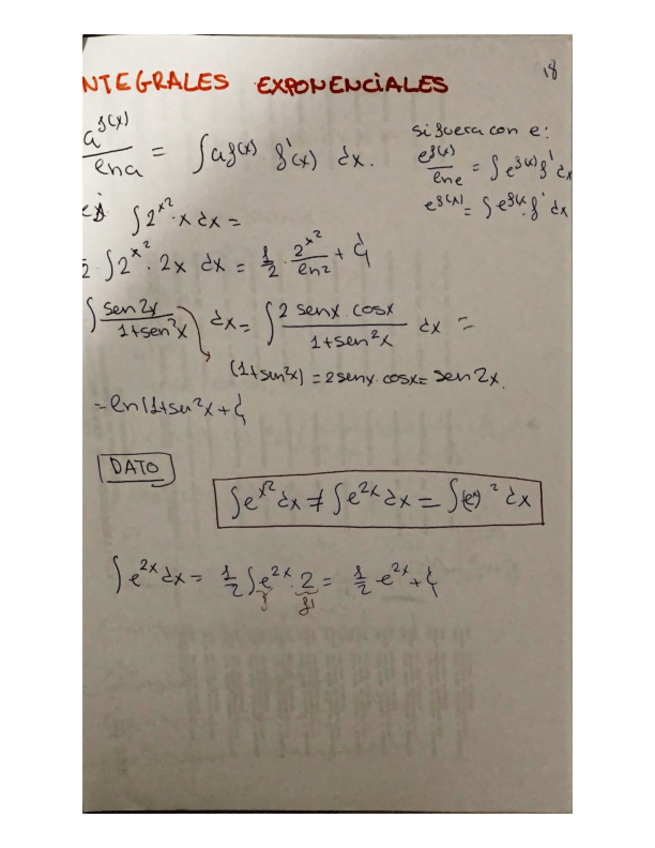 NTEGRALES EXPONENCIALES
18
a^f(x) / ln a = ∫a^f(x) · f'(x) dx.
si fuera con e:
e^f(x) / ln e = ∫e^f(x) f' dx
e^f(x) = ∫e^f(x) · f' dx
ej ∫2^x² · x dx =
2 · ∫2^x² · 2x dx = 1/2 · 2^x² / ln 2 + C
∫ sen 2x / 1+sen²x dx = ∫ 2 senx · cosx / 1+sen²x dx =
(1+sen²x) = 2senx · cosx = sen 2x.
= ln|1+sen²x + C
DATO
∫e^x² dx ≠ ∫e^2x dx = ∫(e^x)² dx
∫e^2x dx = 1/2 ∫e^2x · 2 = 1/2 · e^2x + C
f f'